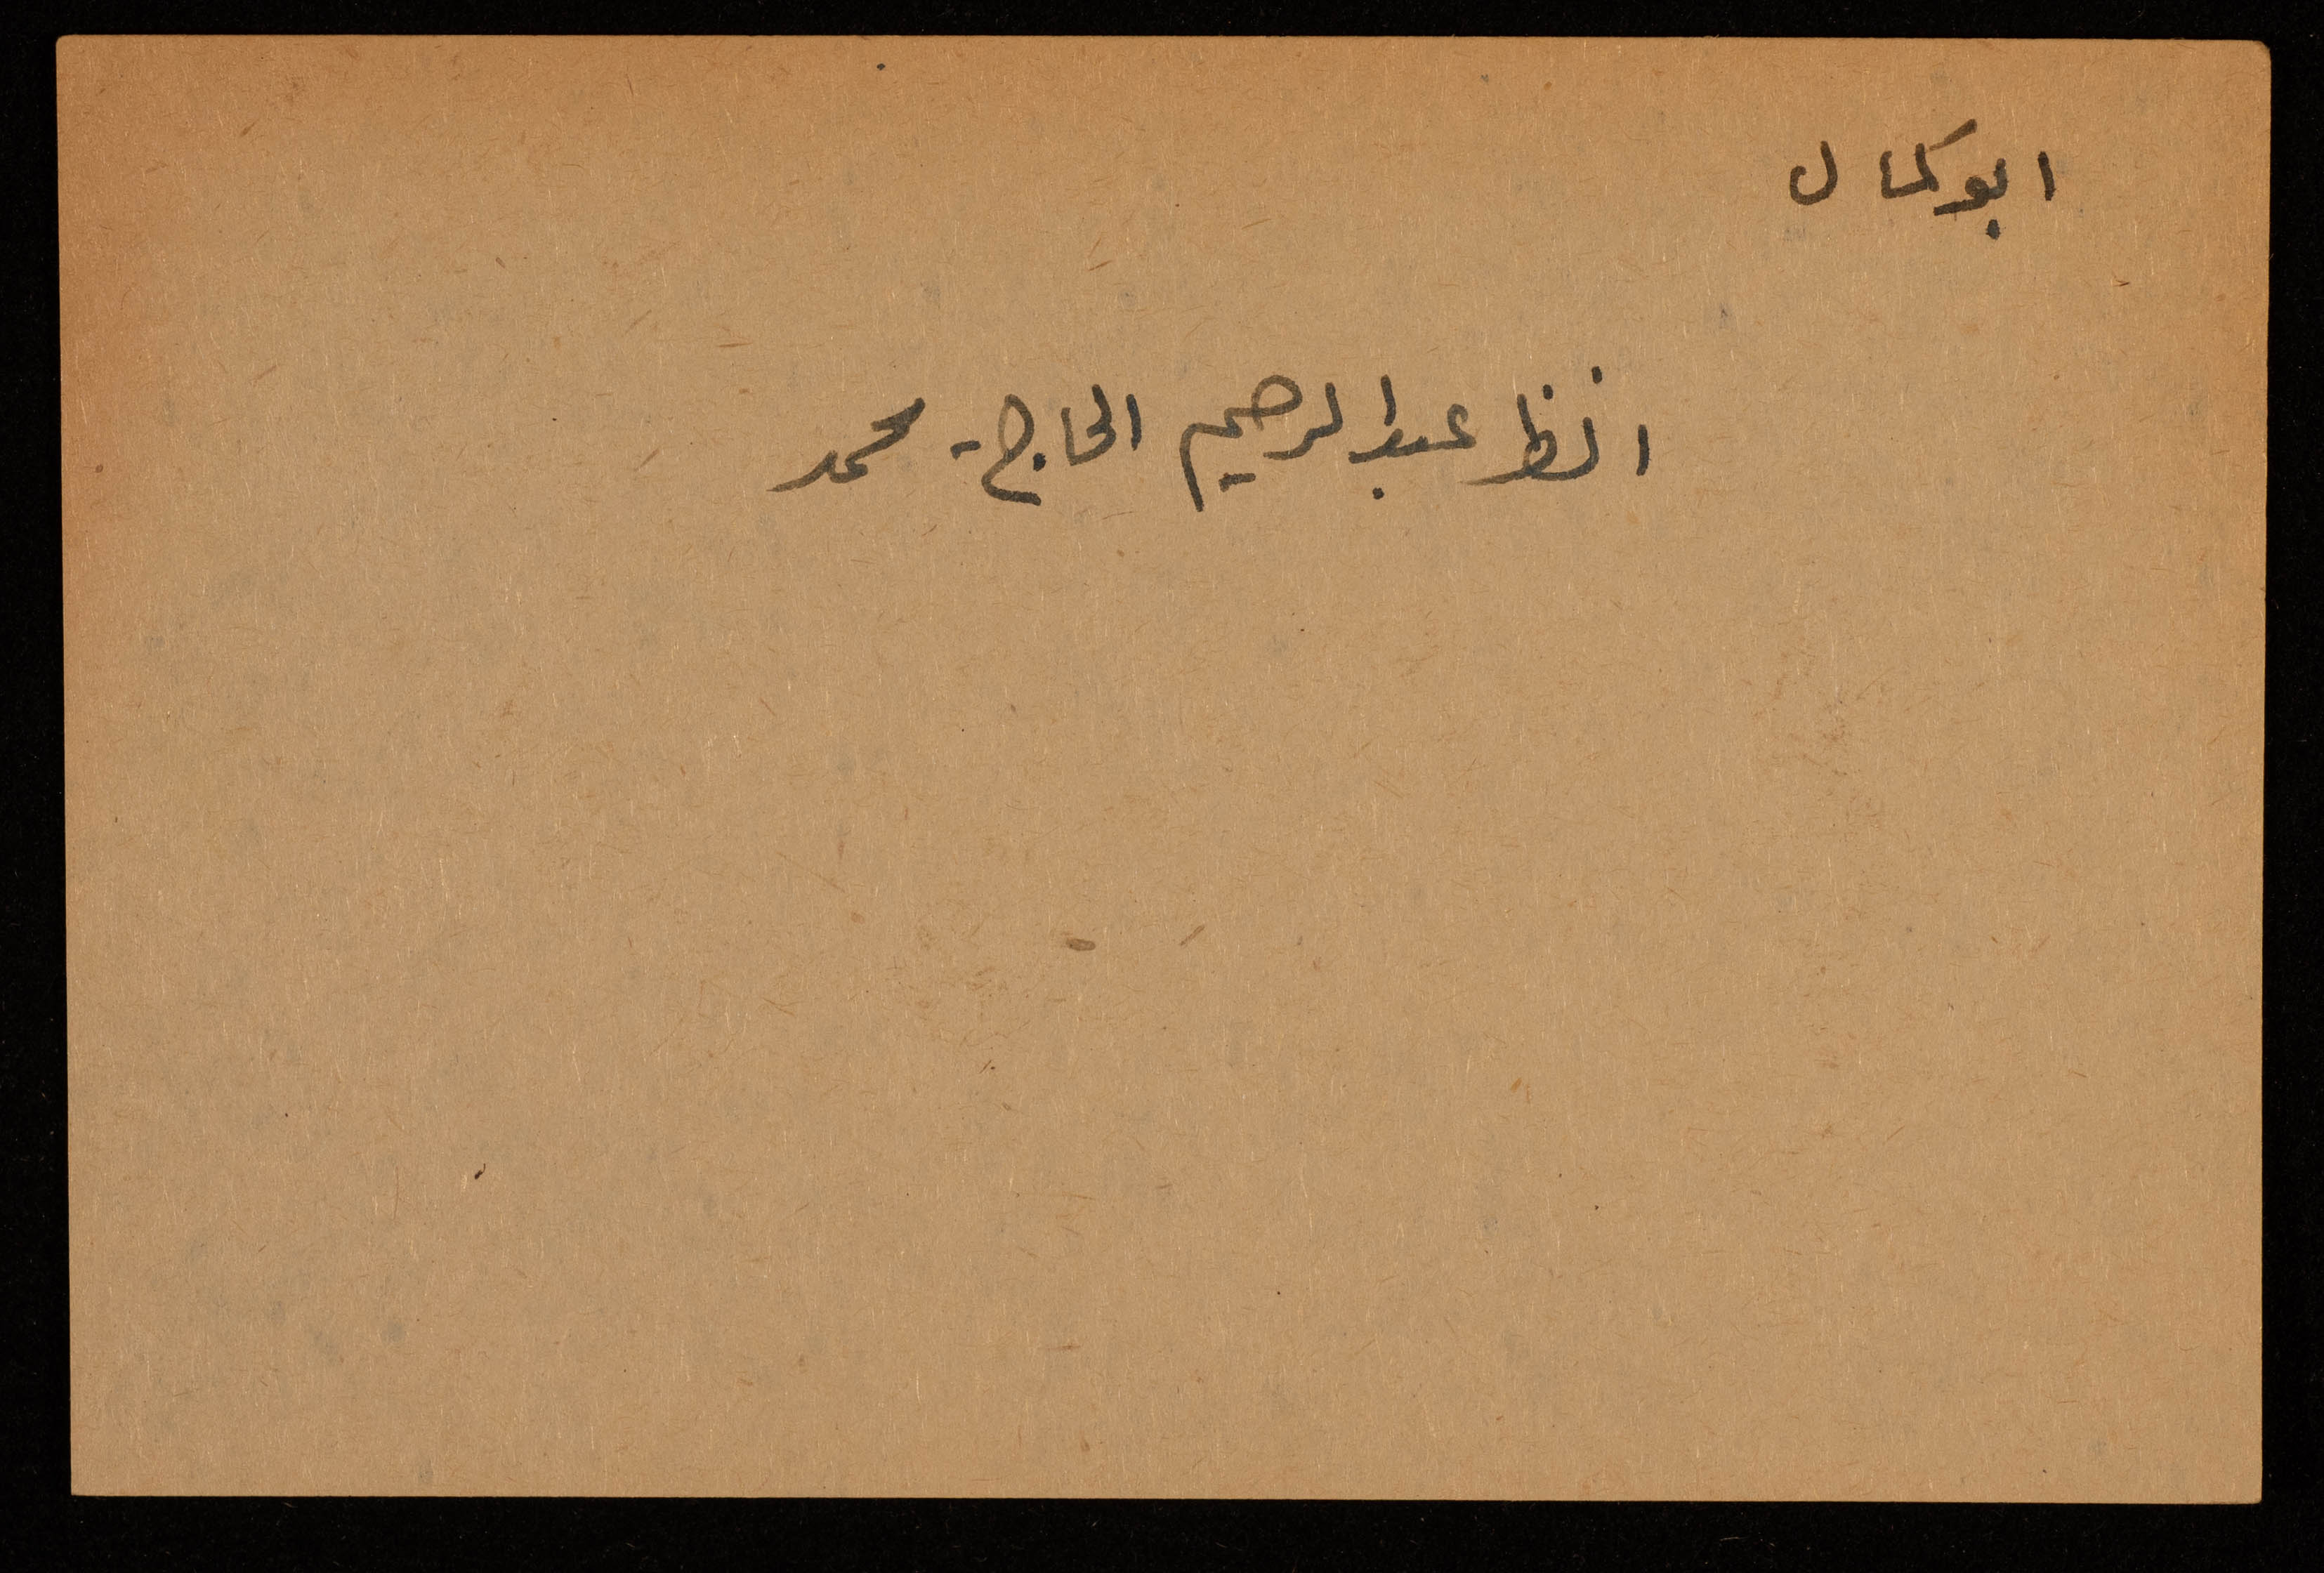 ابو كمال
انظر عبد الرحيم الحاج - محمد